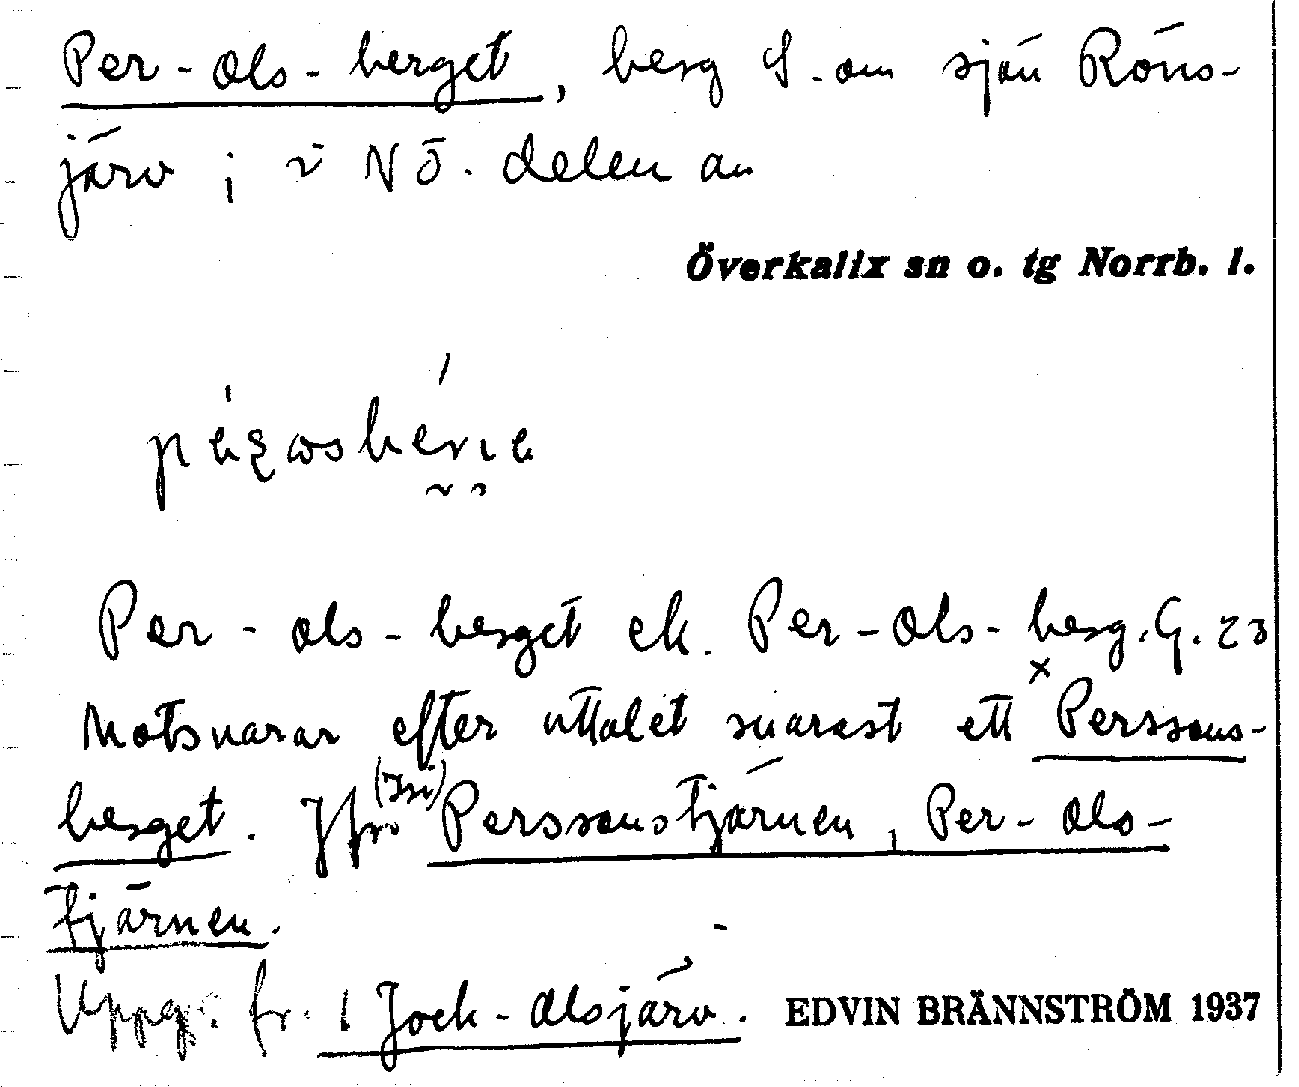 Per-Ols-berget, berg S.om sjön Röns-
järv i v NÖ. delen av
Överkalix sn o. tg Norrb. l.
Per-Ols-berget ek. Per-Ols-berg. G. 23
Motsvarar efter uttalet snarast ett ˣPerssons-
berget. Jfr Perssonstjärnen, Per-Ols-
tjärnen.
Uppg. fr. Jock-Olsjärv. EDVIN BRÄNNSTRÖM 1937